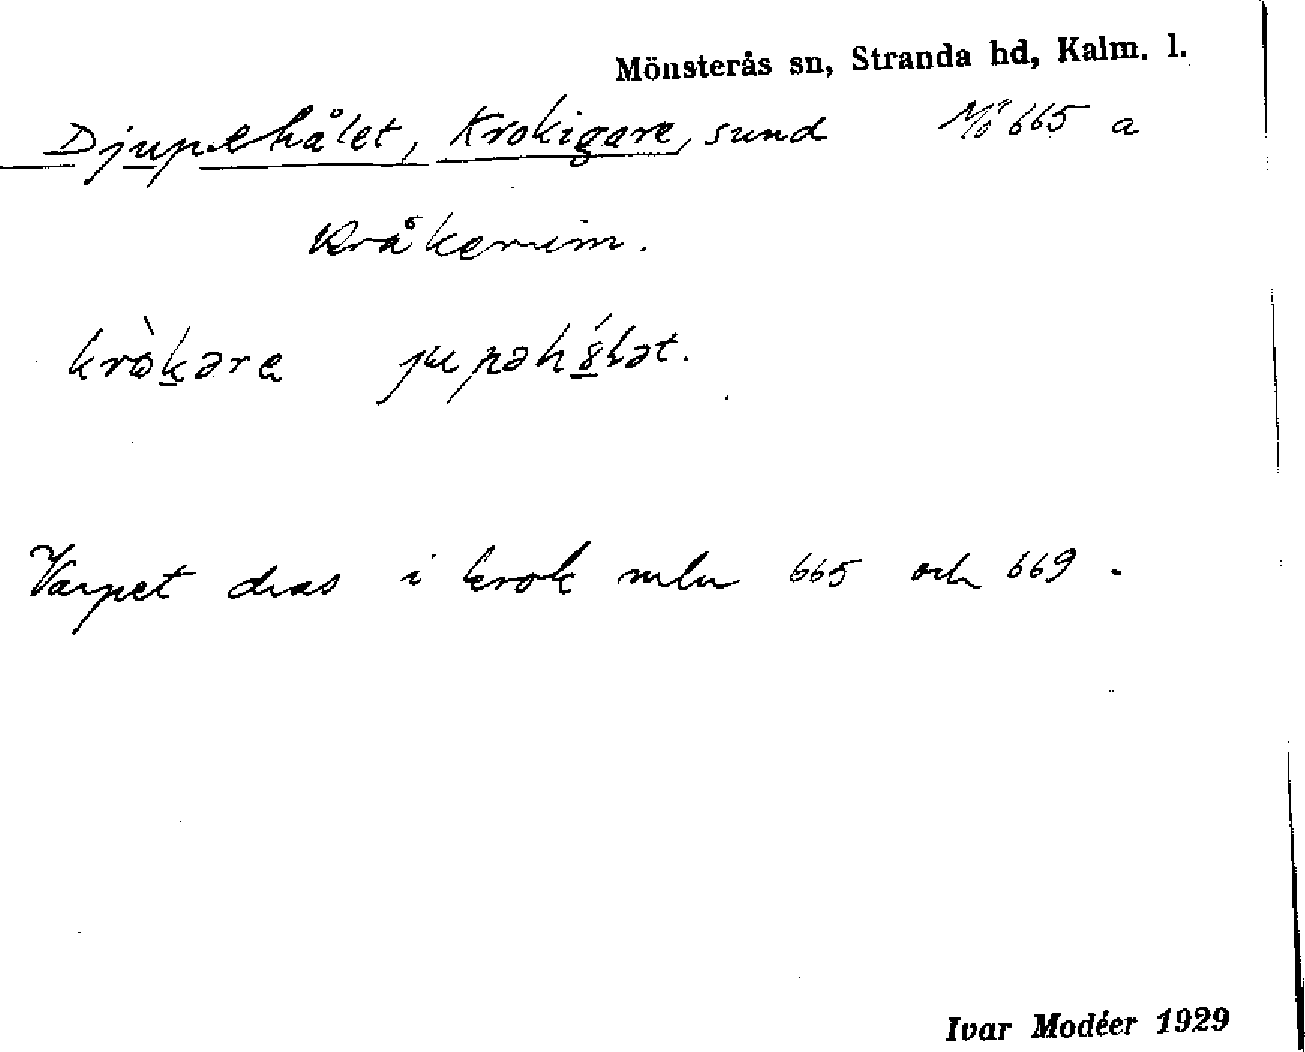 Mönsterås sn, Stranda hd, Kalm. l.
Djupehålet, Krokigare, sund Mö 665 a
Kråkerum.
kròkara jupəh́ålət.
Varpet dras i krok mln 665 och 669.
Ivar Modéer 1929